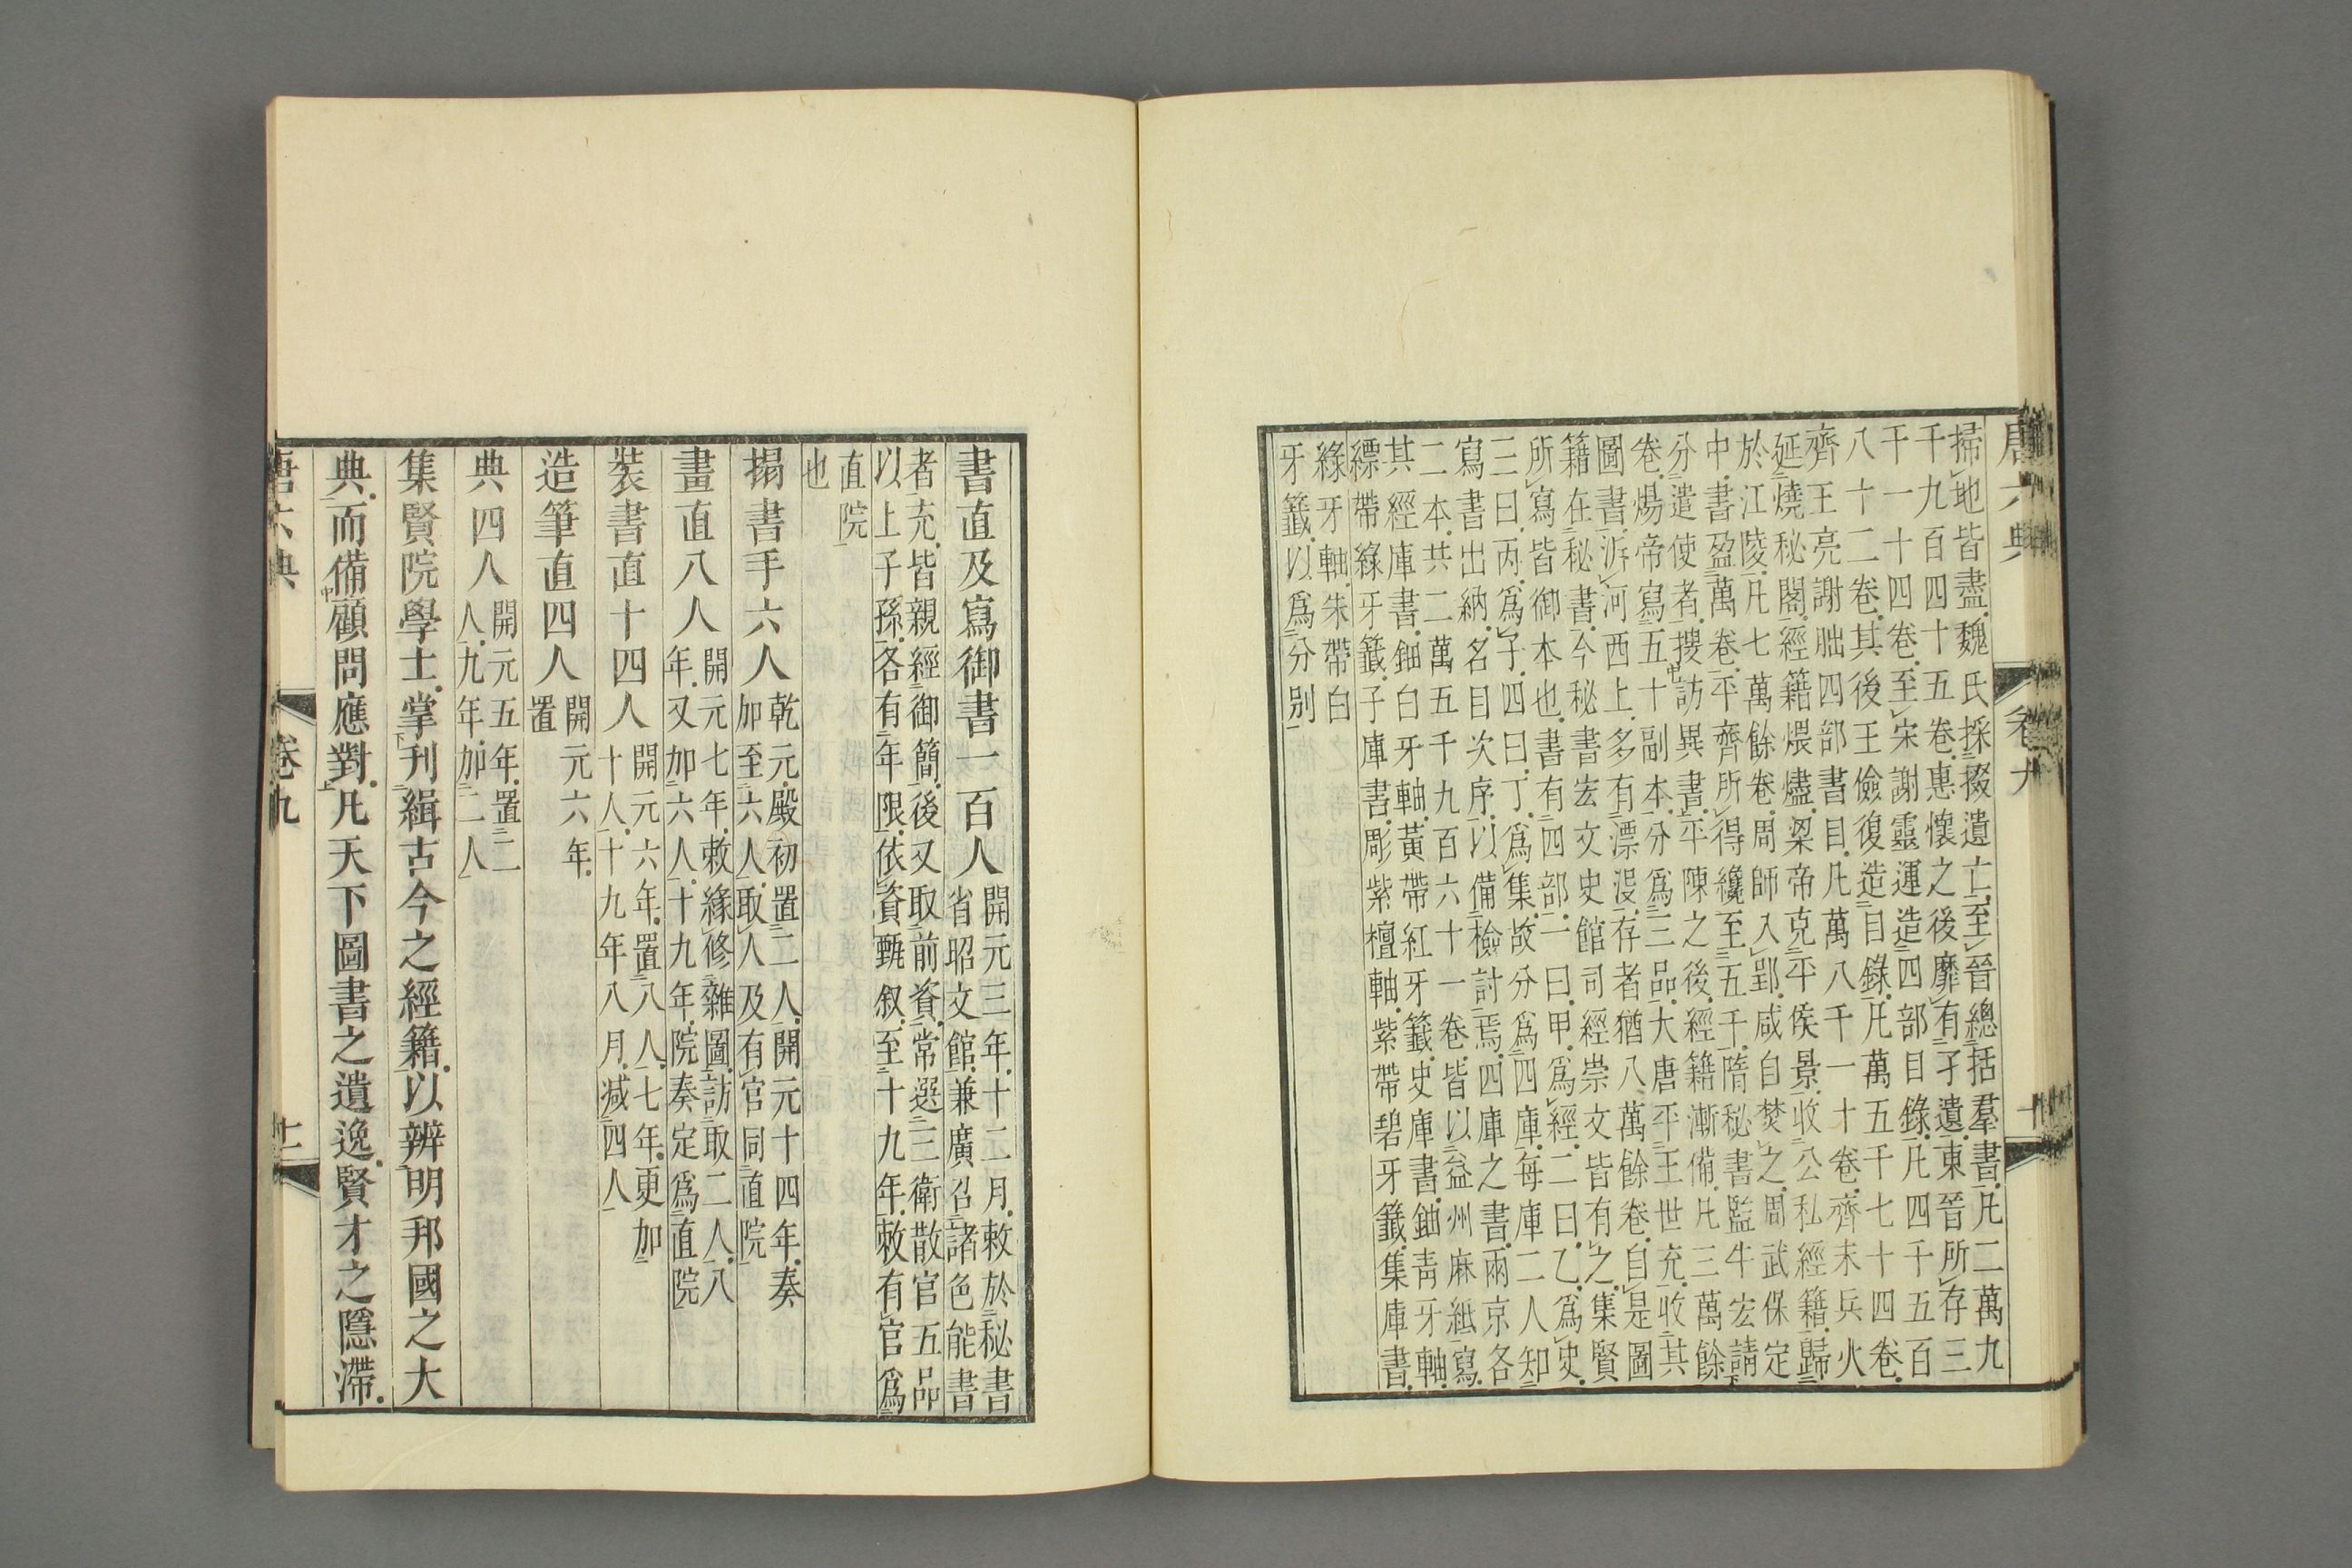 唐六典 卷九 十
掃地皆盡魏氏採掇遺亡至晉總括羣書凡二萬九
千九百四十五卷惠懷之後靡有孑遺東晉所存三
千一十四卷至宋謝靈運造四部目錄凡四千五百
八十二卷其後王儉復造目錄凡萬五千七十四卷
齊王亮謝朏四部書目凡萬八千一十卷齊末兵火
延燒秘閣經籍煨燼梁帝克平侯景收公私經籍歸
於江陵凡七萬餘卷周師入郢咸自焚之周武保定
中書盈萬卷平齊所得纔至五千隋秘書監牛宏請
分遣使者搜訪異書平陳之後經籍漸備凡三萬餘
卷煬帝寫五十副本分爲三品大唐平王世充收其
圖書泝河西上多有漂沒存者猶八萬餘卷自是圖
籍在秘書今秘書宏文史館司經崇文皆有之集賢
所寫皆御本也書有四部一曰甲爲經二曰乙爲史
三曰丙爲子四曰丁爲集故分爲四庫每庫二人知
寫書出納名目次序以備檢討焉四庫之書兩京各
二本共二萬五千九百六十一卷皆以益州麻紙寫
其經庫書鈿白牙軸黃帶紅牙籤史庫書鈿青牙軸
縹帶綠牙籤子庫書彫紫檀軸紫帶碧牙籤集庫書
綠牙軸朱帶白
牙籤以爲分別
書直及寫御書一百人開元三年十二月敕於秘書
省昭文館兼廣召諸色能書
者充皆親經御簡後又取前資常選三衛散官五品
以上子孫各有年限依資甄叙至十九年敕有官爲
直院
也
搨書手六人乾元殿初置二人開元十四年奏
加至六人取人及有官同直院
畫直八人開元七年敕緣修雜圖訪取二人八
年又加六人十九年院奏定爲直院
裝書直十四人開元六年置八人七年更加
十人十九年八月減四人
造筆直四人開元六年
置
典四人開元五年置二
人九年加二人
集賢院學士掌刊緝古今之經籍以辨明邦國之大
典而備顧問應對凡天下圖書之遺逸賢才之隱滯
唐六典 卷九 十一